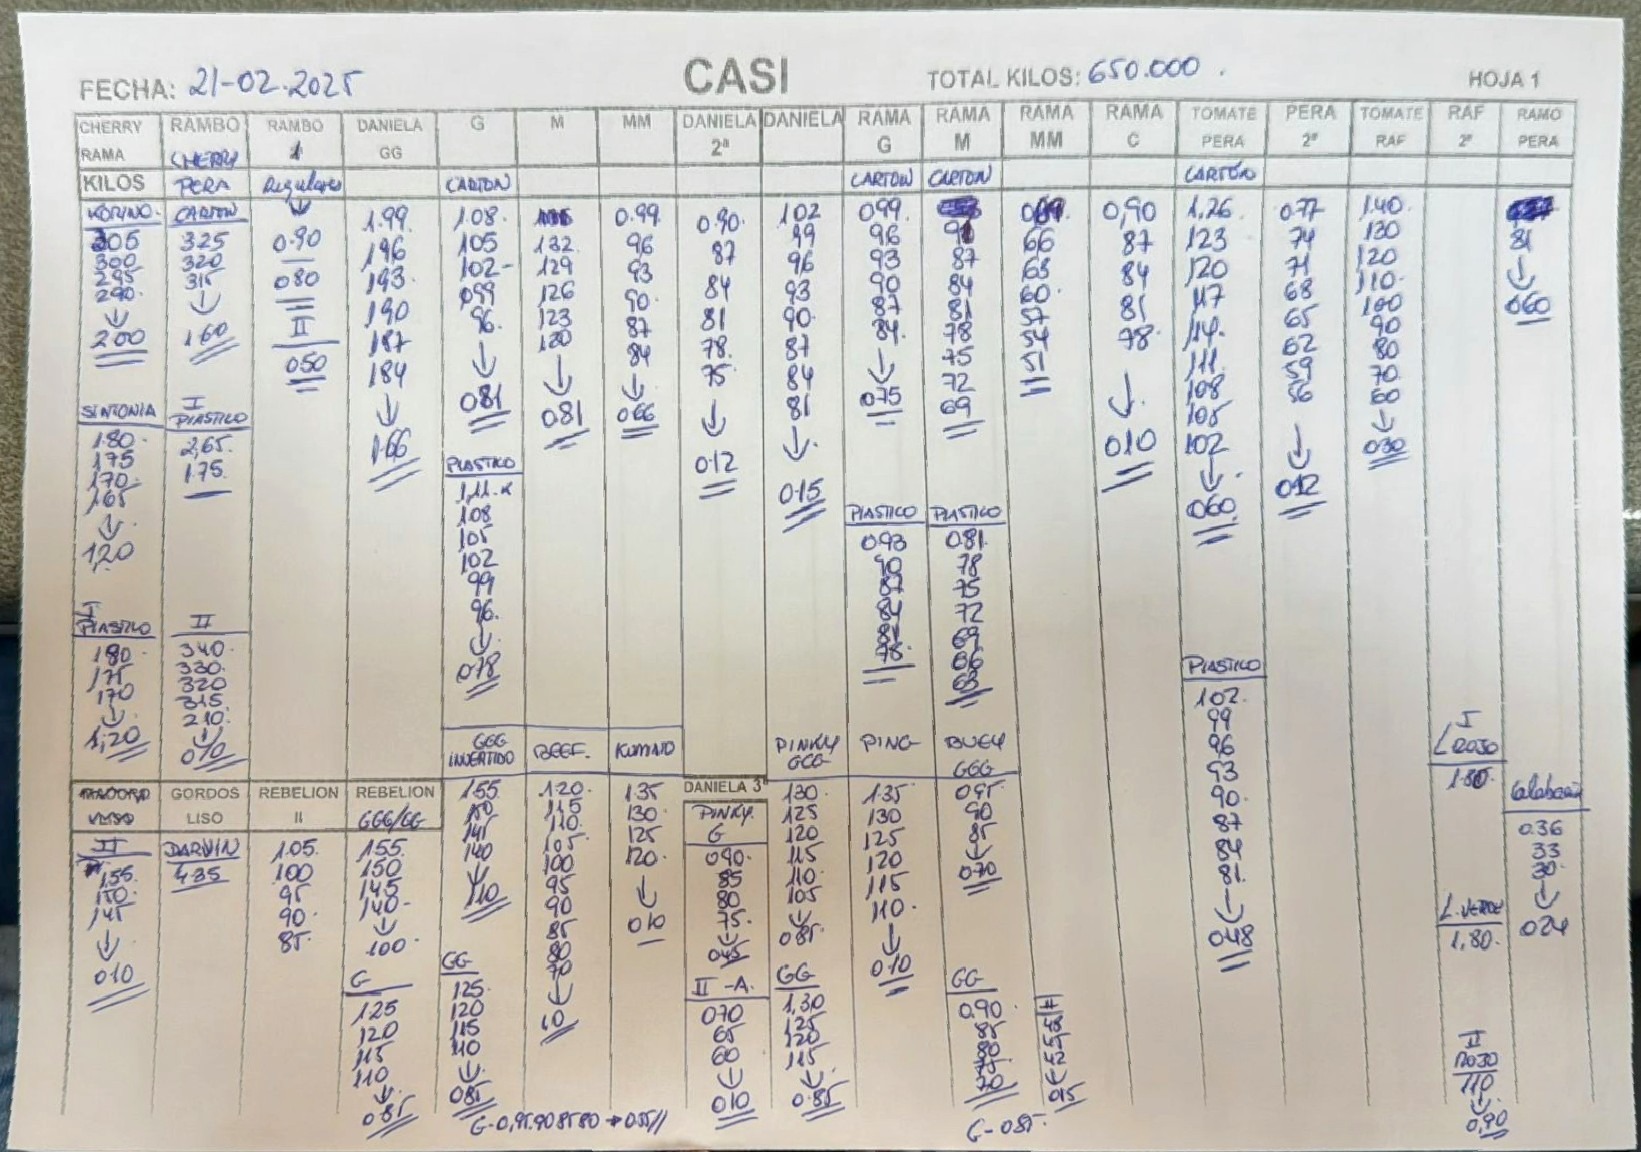 FECHA: 21-02.2025
CASI
TOTAL KILOS: 650.000.
HOJA 1
CHERRY RAMA
KILOS
KORINO.
305
300
295
290.
↓
200
SINTONIA
1.80.
175
170.
165
↓
1,20
I
PLASTICO
1.80.
175
170
↓
1,20
II
155
150.
145
↓
010
RAMBO
CHERRY
PERA
CARTON
325
320
315
↓
1.60
I
PLASTICO
2,65.
1.75.
II
340.
330.
320
315
210.
↓
010
GORDOS
LISO
DARWIN
4.35
RAMBO
1
Regulares
↓
0.90
080
II
050
REBELION
II
1.05.
100
95
90.
85.
DANIELA
GG
1.99.
196
193.
190
187
184
↓
1.66
REBELION
GGG/GG
155.
150
145
140-
↓
100.
G
125
120
115
110
↓
085
G
CARTON
1.08.
105
102-
099
96.
↓
081
PLASTICO
1,11.
108
105
102
99
96.
↓
078
GGG
INVERTIDO
155
150
145
140
↓
110
GG
125.
120
115
110
↓
085
G-0,95.90 85 80 → 055//
M
132.
129
126
123
120
↓
081
BEEF.
1.20.
115
110.
105.
100
95
90
85
80
70
↓
10
MM
0.99.
96
93
90.
87
84
↓
066
KUMATO
1.35
130.
125
120.
↓
010
DANIELA
2ª
0.90.
87
84
81
78.
75.
↓
0.12
DANIELA 3ª
PINKY.
G
090.
85
80
75.
↓
045
II-A.
070
65
60
↓
010
DANIELA
102
99
96
93
90.
87
84
81
↓
0.15
PINKY
GGG
130.
125
120
115
110.
105
↓
085.
GG
1,30
125
120
115
↓
0.85
RAMA
G
CARTON
099.
96
93
90
87
84.
↓
075
PLASTICO
093
90
87
84
81
78.
PING
1.35
130
125
120
115
110.
↓
010
RAMA
M
CARTON
87
84
81
78
75
72
69
PLASTICO
0.81.
78
75
72
69
66
63
GGG
095
90
85
↓
070
GG
0.90
85
80
75
70
G-085.
RAMA
MM
66
63
60.
57
54
51
RAMA
C
0,90
87
84
81
78.
↓
010
TOMATE
PERA
CARTON
1,26.
123
120
117
114.
111.
108
105
102
↓
060
PLASTICO
102.
99
96
93
90.
87
84
81.
↓
048
PERA
2ª
0.77
74
71
68
65
62
59
56
↓
012
TOMATE
RAF
1.40.
130
120
110.
100
90
80
70.
60
↓
030
RAF
2ª
I
L ROJO
1.80.
L.VERDE
1,80.
II
ROJO
110
↓
0,90
RAMO
PERA
81
↓
060
Calabacin
0.36
33
30.
↓
024